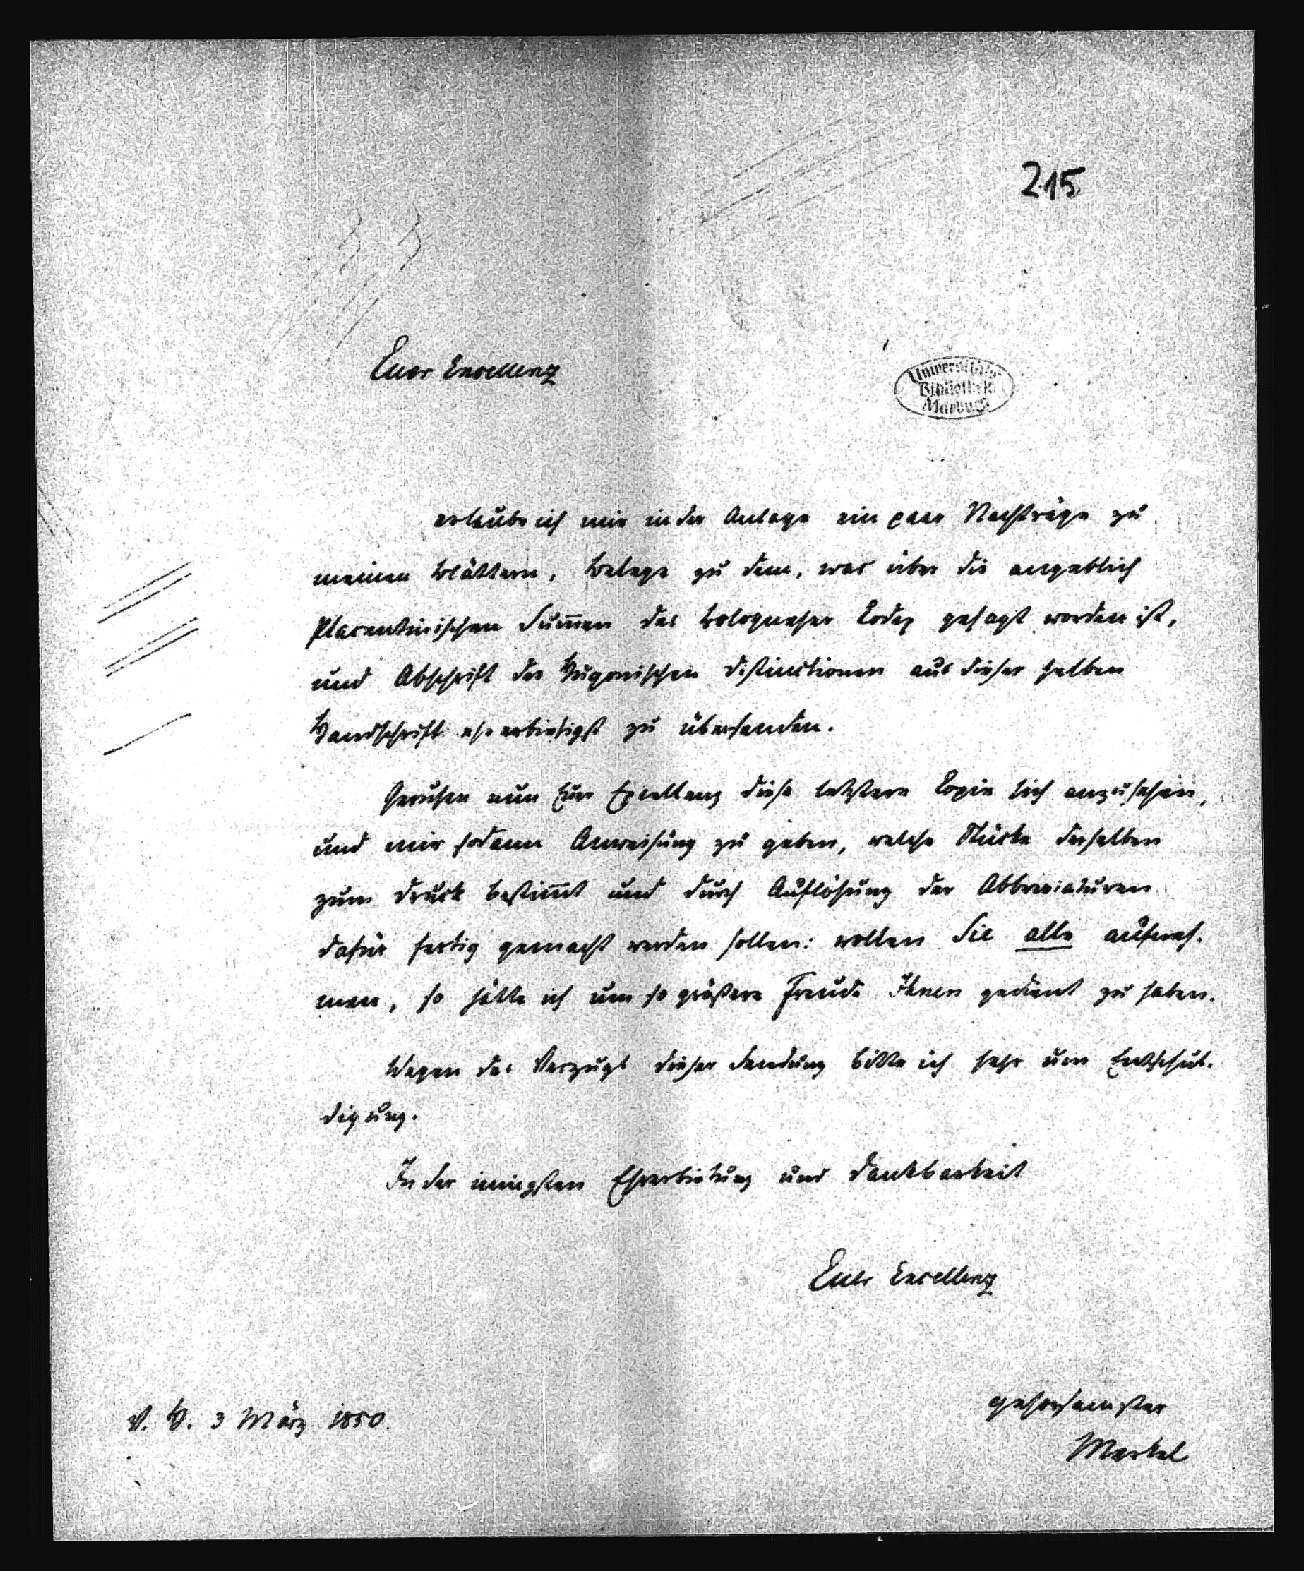 215
Euer Excellenz
Universitäts
Bibliothek
Marburg
erlaube ich mir in der Anlage ein paar Nachträge zu
meinen Blättern, Belege zu dem, was über die angeblich
Placentinischen Summen des Bologneser Codex gesagt worden ist,
und Abschrift der Hugonischen Distinctionen aus dieser selben
Handschrift ehrerbietigst zu übersenden.
Geruhen nun Eure Excellenz diese letztere Copie sich anzusehen,
und mir sodann Anweisung zu geben, welche Stücke derselben
zum Druck bestim̅t und durch Auflösung der Abbreviaturen
dafür fertig gemacht werden sollen: wollen Sie alle aufneh-
men, so hätte ich um so größere Freude Ihnen gedient zu haben.
Wegen des Verzugs dieser Sendung bitte ich sehr um Entschul-
digung.
In der innigsten Ehrerbietung und Dankbarkeit
Euer Excellenz
gehorsamster
V. H. 3 März 1850.
Merkel